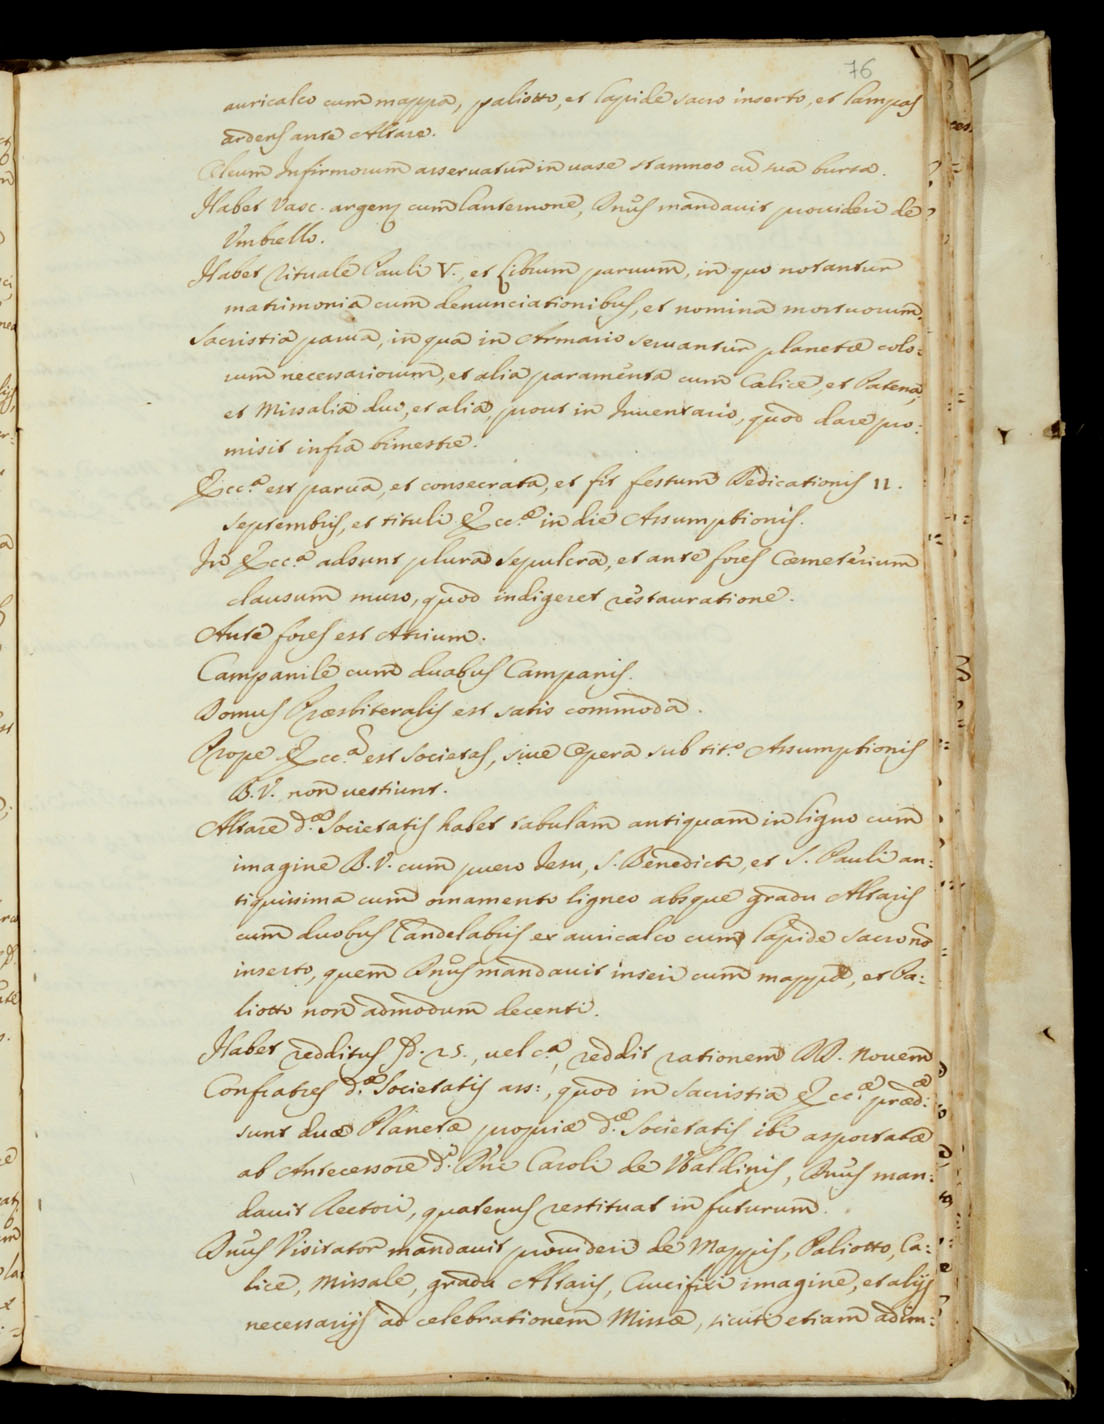 76
auricalco cum mappa, paliotto, et lapide sacro inserto, et lampas
ardens ante Altare.
Oleum Infirmorum asservatur in vase stamneo cũ sua bursa.
Habet Vasc. argen. cum lanternone, Dnũs mandavit provideri de
Vmbrello.
Habet Rituale Pauli V., et Librum parvum, in quo notantur
matrimonia cum denunciationibus, et nomina mortuorum.
Sacristia parva, in qua in Armario servantur planetæ colo:
rum necessariorum, et alia paramenta cum Calice, et Patena,
et Missalia duo, et alia, prout in Inventario, quod dare pro:
misit infra bimestre.
Ecc.ª est parva, et consecrata, et fit festum Dedicationis 11.
Septembris, et tituli Ecc.æ in die Assumptionis.
In Ecc.ª adsunt plura sepulcra, et ante fores Cœmeterium
clausum muro, quod indigeret restauratione.
Ante fores est Atrium.
Campanile cum duabus Campanis.
Domus Præsbiteralis est satis commoda.
Prope Ecc.ª est societas, sive Opera sub tit.º Assumptionis
B.V. non vestiunt.
Altare d.æ Societatis habet tabulam antiquam in ligno cum
imagine B.V. cum puero Jesu, S. Benedicti, et S. Pauli an:
tiquissima cum ornamento ligneo absque gradu Altaris
cum duobus Candelabris ex auricalco cum lapide sacro nõ
inserto, quem Dnũs mandavit inseri cum mappa, et Pa:
liotto non admodum decenti.
Habet redditus 25., vel c.ª, reddit rationem DD. Novem
Confratres d.æ Societatis ass:, quod in sacristia Ecc.æ præd.æ
sunt duæ Planetæ propriæ d.æ Societatis ibi asportatæ
ab Antecessore d. Dni Caroli de Vbaldinis, Dnũs man:
davit Rectori, quatenus restituat in futurum.
Dnũs Visitator mandavit provideri de Mappis, Paliotto, Ca:
lice, Missale, gradu Altaris, Crucifixi imagine, et alijs
necessarijs ad celebrationem Missæ, sicuti etiam adim: